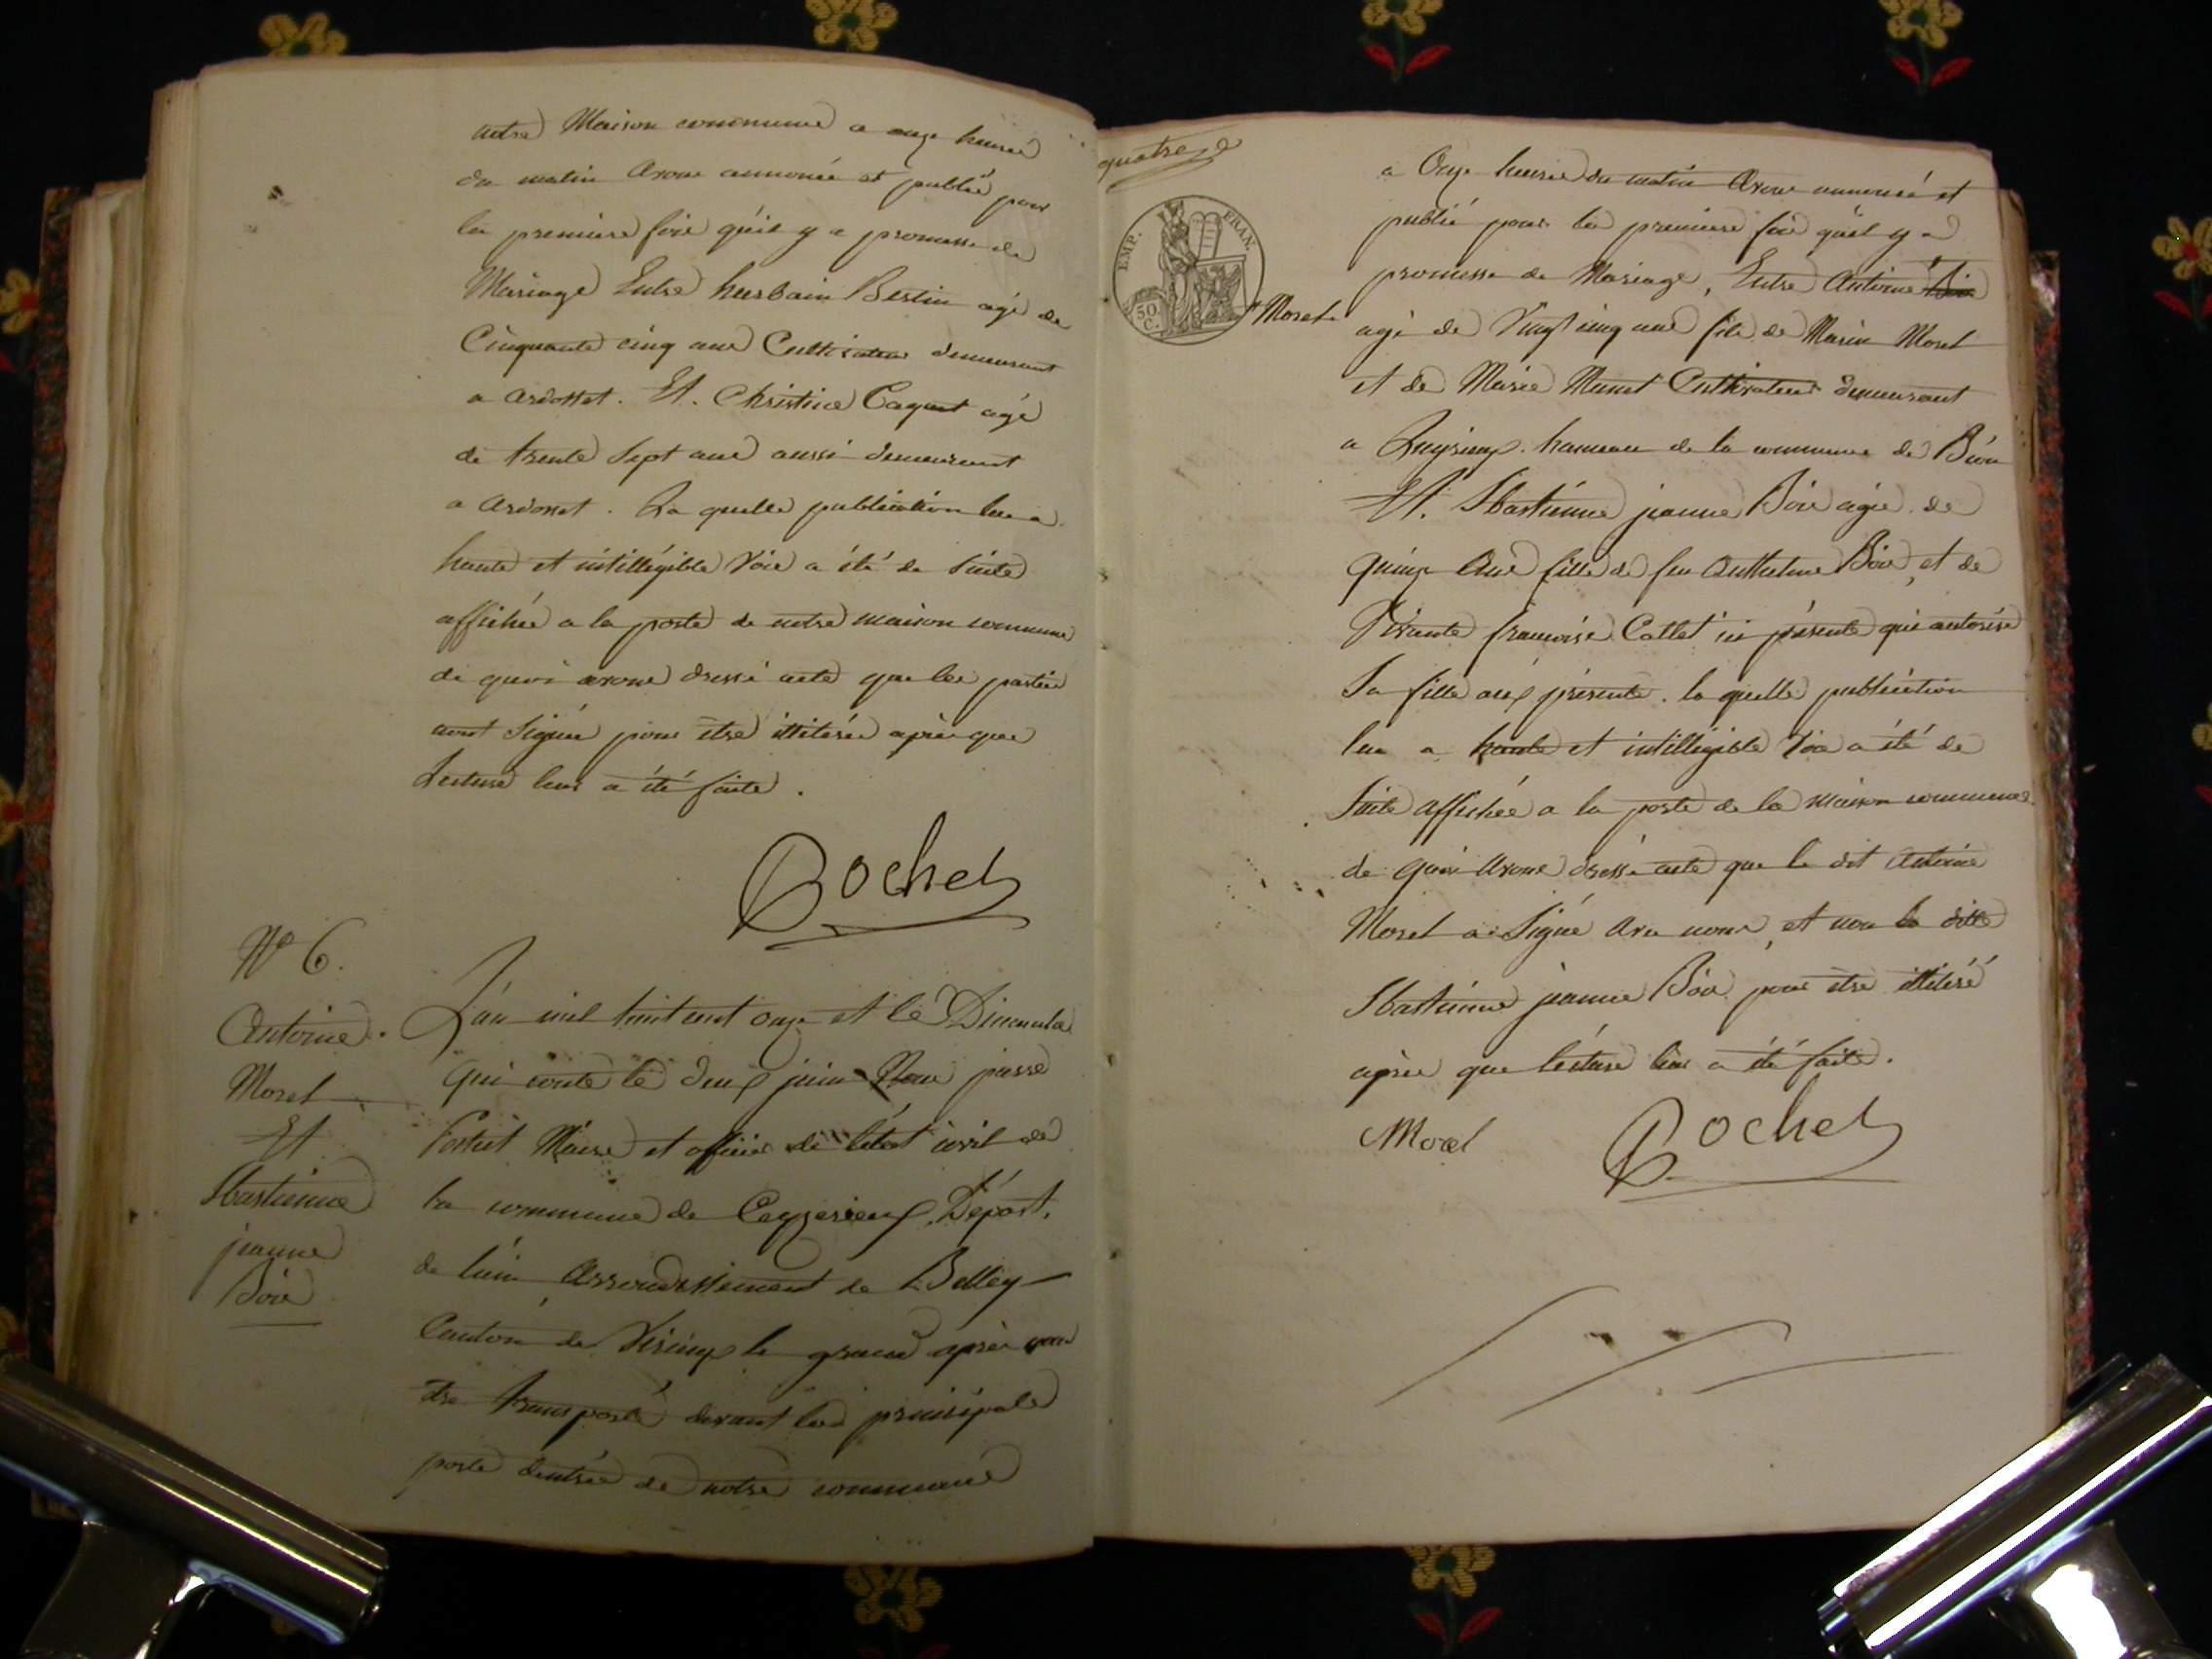 notre Maison commune a onze heures
du matin avons annoncé et publié pour
la premiere fois qu'il y a promesse de
Mariage Entre hurbain Bertin agé de
Cinquante cinq ans Cultivateur demeurant
a ardosset. Et. Christine Caquet agé
de trente Sept ans aussi demeurant
a ardosset. La quelle publication lue a
haute et intilligible Voix a été de Suite
affichée a la porte de notre maison commune
de quoi avons dressé acte que les parties
nont Signés pour être illitérés après que
Lecture leur a été faite.
Rochet
N° 6.
Antoine
Morel
Et
Sbastienne
jeanne
Boie
L'an mil huit cent onze et le Dimanche
qui conte le deux juin Nous
Maire et officier de létat civil de
la commune de Ceyzerieux, Départ.
de l'ain Arrondissement de Belley
Canton de Virieux le grand après nous
être transporté devant la principale
porte dentrée de notre commune
quatre
EMP. FRAN.
50 C.
Morel
a Onze heures du matin Avons annoncé et
publié pour la premiere fois qu'il y a
promesse de Mariage, Entre Antoine
agé de Vingt cinq ans fils de Marin Morel
et de Marie Munet Cultivateur demeurant
a hameau de la commune de Béon
Et. Sbastienne jeanne Boie agée de
quinze Ans fille de feu Anthelme Boie, et de
Vivante francoise Collet ici présente qui autorise
Sa fille aux présente. la quelle publication
lue a haute et intilligible Voix a été de
Suite affichée a la porte de la maison commune
de quoi Avons dressé acte que le dit Antoine
Morel a Signé Avec nous, et non la ditte
Sbastienne jeanne Boie pour etre illitéré
après que lécture leur a été faite.
Morel
Rochet